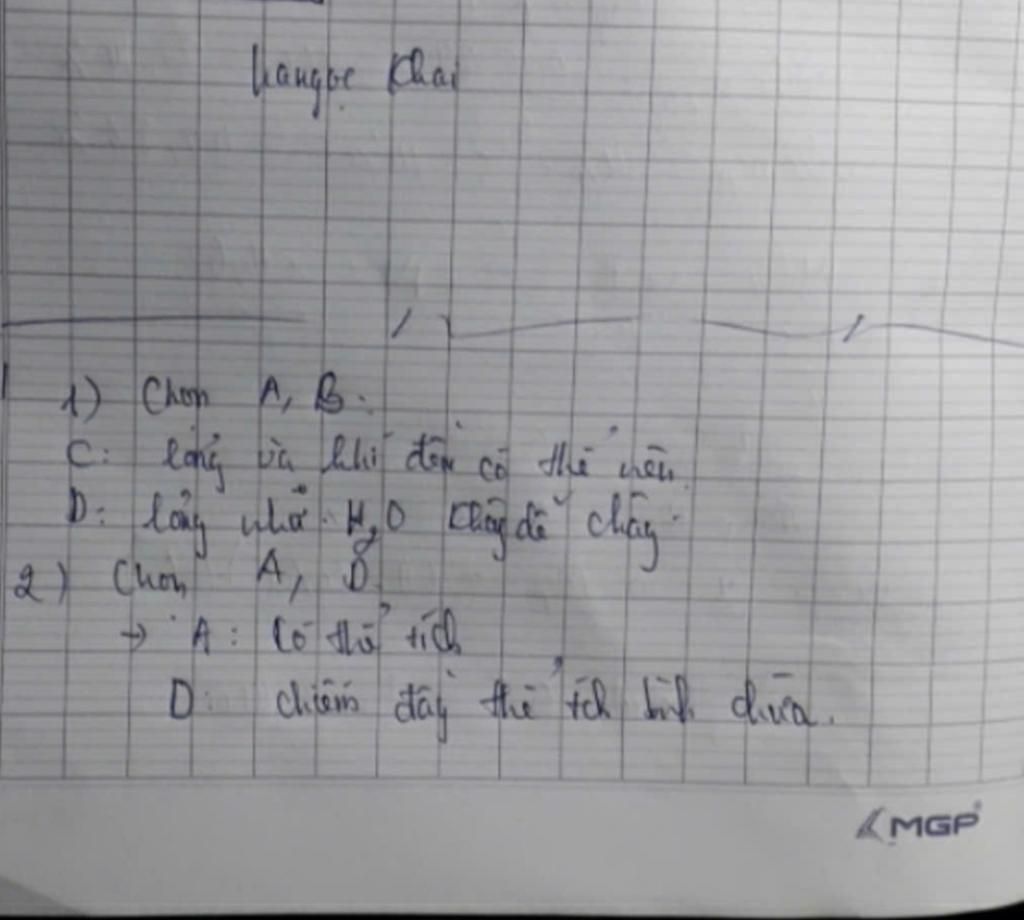 Khai
1) Chọn A, B.
C: lỏng và khí đều có thể nén
D: lỏng như H2O chảy dễ chảy
2) Chọn A, D
→ A: Có thể tích
D: chiếm đầy thể tích bình chứa.
MGP